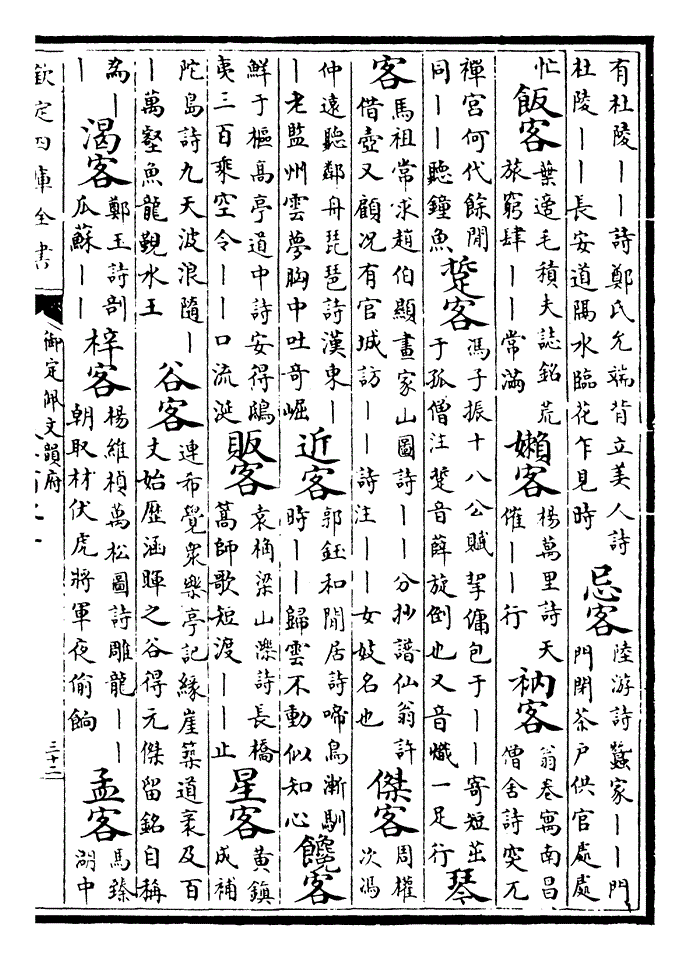 有杜陵丨丨詩鄭氏允端背立美人詩
杜陵丨丨長安道隔水臨花乍見時
忌客
陸游詩蠶家丨丨門
門閉茶户供官處處
忙
飯客
葉適毛積夫誌銘荒
旅窮肆丨丨常滿
嬾客
楊萬里詩天
催丨丨行
衲客
翁卷寓南昌
僧舍詩突兀
禪宫何代餘閒
同丨丨聽鐘魚
踅客
馮子振十八公賦挐傭包于丨丨寄短茁
于孤僧注踅音薛旋倒也又音熾一足行
琴
客
馬祖常求趙伯顯畫家山圖詩丨丨分抄譜仙翁許
借壺又顧况有官城訪丨丨詩注丨丨女妓名也
傑客
周權
次馮
仲遠聽鄰舟琵琶詩漢東丨
丨老監州雲夢胸中吐奇崛
近客
郭鈺和閒居詩啼鳥漸馴
時丨丨歸雲不動似知心
饞客
鮮于樞髙亭道中詩安得鴟
夷三百乘空令丨丨口流涎
販客
袁桷梁山濼詩長橋
篙師歌短渡丨丨止
星客
黄鎮
成補
陀島詩九天波浪隨丨
丨萬壑魚龍覲水王
谷客
連希覺衆樂亭記緣崖築道袤及百
丈始歷涵暉之谷得元傑留銘自稱
為丨
渴客
鄭玉詩剖
瓜蘇丨丨
梓客
楊維楨萬松圖詩雕龍丨丨
朝取材伏虎將軍夜偷餉
孟客
馬臻
湖中
欽定四庫全書
御定佩文韻府
三十二